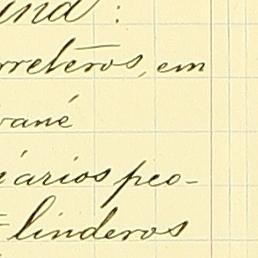 rreteros, em
vané
iarios peo-
= linderos